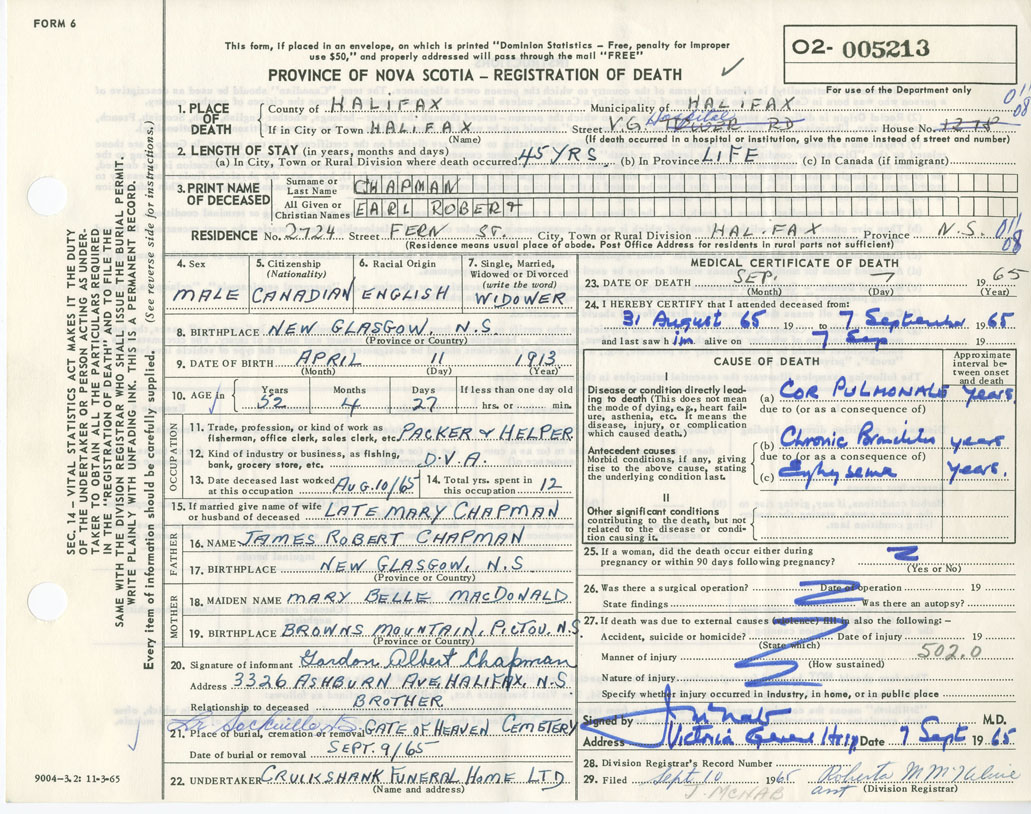 FORM 6
This form, if placed in an envelope, on which is printed "Dominion Statistics – Free, penalty for improper
use $50," and properly addressed will pass through the mail "FREE"
PROVINCE OF NOVA SCOTIA – REGISTRATION OF DEATH ✓
02- 005213
For use of the Department only
SEC. 14 – VITAL STATISTICS ACT MAKES IT THE DUTY
OF THE UNDERTAKER OR PERSON ACTING AS UNDER-
TAKER TO OBTAIN ALL THE PARTICULARS REQUIRED
IN THE "REGISTRATION OF DEATH" AND TO FILE THE
SAME WITH THE DIVISION REGISTRAR WHO SHALL ISSUE THE BURIAL PERMIT.
WRITE PLAINLY WITH UNFADING INK. THIS IS A PERMANENT RECORD.
Every item of information should be carefully supplied. (See reverse side for instructions.)
1. PLACE OF DEATH
County of HALIFAX Municipality of HALIFAX
If in City or Town HALIFAX Street V.G. Hospital TOWER RD House No. 1278
(Name) (If death occurred in a hospital or institution, give the name instead of street and number)
011
08
2. LENGTH OF STAY (in years, months and days)
(a) In City, Town or Rural Division where death occurred 45 YRS (b) In Province LIFE (c) In Canada (if immigrant)
3. PRINT NAME OF DECEASED
Surname or Last Name CHAPMAN
All Given or Christian Names EARL ROBERT
RESIDENCE No. 2724 Street FERN ST. City, Town or Rural Division HALIFAX Province N.S. 011
08
(Residence means usual place of abode. Post Office Address for residents in rural parts not sufficient)
4. Sex MALE
5. Citizenship (Nationality) CANADIAN
6. Racial Origin ENGLISH
7. Single, Married, Widowed or Divorced (write the word) WIDOWER
8. BIRTHPLACE NEW GLASGOW, N.S.
(Province or Country)
9. DATE OF BIRTH APRIL 11 1913
(Month) (Day) (Year)
10. AGE in Years 52 Months 4 Days 27 If less than one day old hrs. or min.
OCCUPATION
11. Trade, profession, or kind of work as fisherman, office clerk, sales clerk, etc. PACKER & HELPER
12. Kind of industry or business, as fishing, bank, grocery store, etc. D.V.A.
13. Date deceased last worked at this occupation AUG.10/65 14. Total yrs. spent in this occupation 12
15. If married give name of wife or husband of deceased LATE MARY CHAPMAN
FATHER
16. NAME JAMES ROBERT CHAPMAN
17. BIRTHPLACE NEW GLASGOW, N.S
(Province or Country)
MOTHER
18. MAIDEN NAME MARY BELLE MACDONALD
19. BIRTHPLACE BROWNS MOUNTAIN, PICTOU, N.S
(Province or Country)
20. Signature of informant Gordon Albert Chapman
Address 3326 ASHBURN AVE, HALIFAX, N.S.
Relationship to deceased BROTHER
21. Place of burial, cremation or removal GATE OF HEAVEN CEMETERY
Date of burial or removal SEPT. 9/65
22. UNDERTAKER CRUIKSHANK FUNERAL HOME LTD.
(Name and address)
9004-3.2: 11-3-65
MEDICAL CERTIFICATE OF DEATH
23. DATE OF DEATH SEP. 7 1965
(Month) (Day) (Year)
24. I HEREBY CERTIFY that I attended deceased from:
31 August 65 19 to 7 September 1965
and last saw him alive on 7 Sep 19
CAUSE OF DEATH
Approximate interval between onset and death
I
Disease or condition directly leading to death (This does not mean the mode of dying, e.g., heart failure, asthenia, etc. It means the disease, injury, or complication which caused death.)
(a) COR PULMONALE years.
due to (or as a consequence of)
Antecedent causes
Morbid conditions, if any, giving rise to the above cause, stating the underlying condition last.
(b) Chronic Bronchitis years
due to (or as a consequence of)
(c) Emphysema years.
II
Other significant conditions
contributing to the death, but not related to the disease or condition causing it.
25. If a woman, did the death occur either during
pregnancy or within 90 days following pregnancy?
(Yes or No)
26. Was there a surgical operation? Date of operation 19
State findings Was there an autopsy?
27. If death was due to external causes (violence) fill in also the following: –
Accident, suicide or homicide? Date of injury 19
(State which) 502.0
Manner of injury
(How sustained)
Nature of injury
Specify whether injury occurred in industry, in home, or in public place
Signed by J McNab M.D.
Address Victoria General Hosp Date 7 Sept 1965
28. Division Registrar's Record Number
29. Filed Sept 10 1965 Roberta M
(Division Registrar)
J. MCNAB